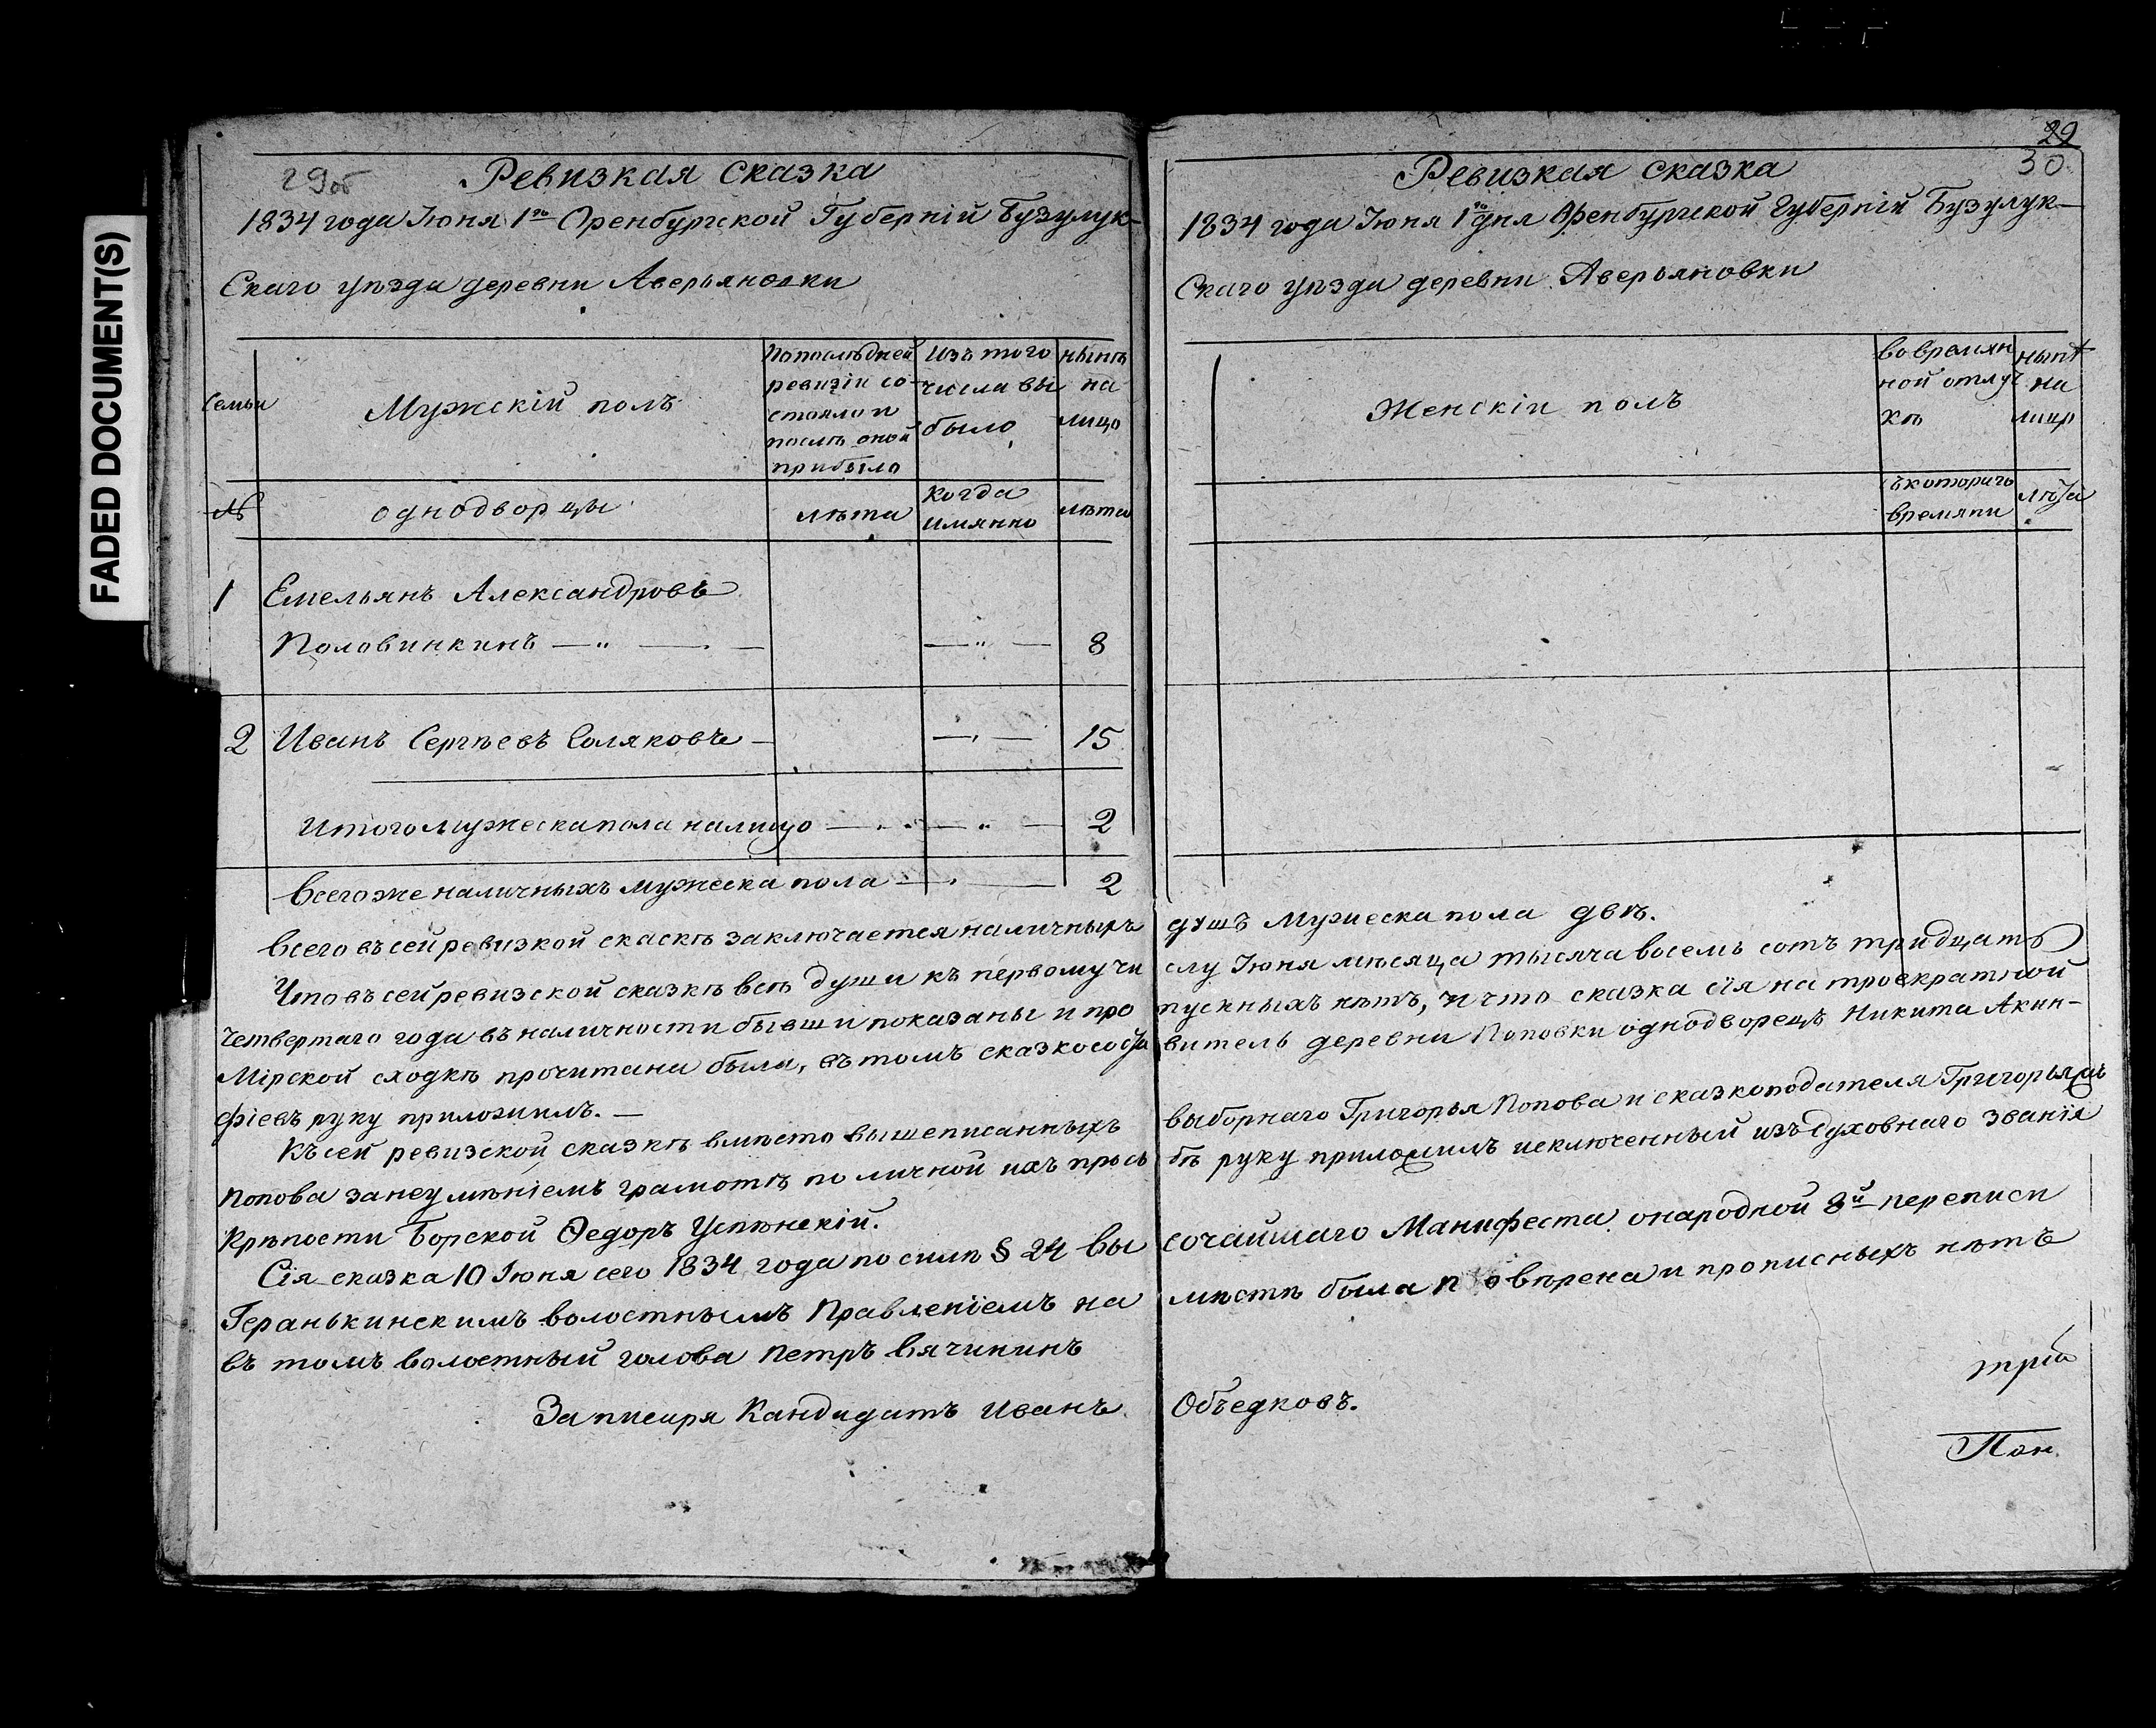 FADED DOCUMENT(S)
29об
Ревизкая сказка
1834 года Июня 1го Оренбургской Губерніи Бузулук-
Скаго уѣзда деревни Аверьяновки
Семьи
Мужскій полъ
По последней ревизіи со-стояло и после оной прибыло
Изъ того числа выбыло
нынѣ на лицо
№
однодворцы
лѣта
когда имянно
лѣта
1 Емельянъ Александровъ
Половинкинъ — " — — — " — 8
2 Иванъ Сергѣевъ Соляковъ — — " — 15
Итого мужеска пола налицо — " — " — 2
Всего же наличныхъ мужеска пола — " — 2
Всего въ сей ревизкой скаскѣ заключается наличныхъ
Что въ сей ревизской сказкѣ всѣ души къ первому чи
четвертаго года въ наличности бывши показаны и про
Мірской сходкѣ прочитана была, въ томъ сказкососта
фіевъ руку приложилъ. —
Къ сей ревизской сказкѣ вмѣсто вышеписанныхъ
Попова за неумѣніемъ грамотѣ по личной ихъ прозь
Крѣпости Борской Ѳедоръ Успѣнскій.
Сія сказка 10 Июня сего 1834 года по силѣ § 24 Вы
Геранькинскимъ волостнымъ Правленіемъ на
въ томъ волостный голова Петръ Вячикинъ
За писаря Кандидатъ Иванъ
29
30
Ревизкая сказка
1834 года Июня 1го дня Оренбургской Губерніи Бузулук-
Скаго уѣзда деревни Аверьяновки
Женскіи полъ
во времян ной отлуч кѣ
нынѣ на лицо
съ котораго времяни
лѣта
душъ Мужеска пола двѣ.
слу Июня мѣсяца тысяча восемь сотъ тридцать
пускныхъ нѣтъ, и что сказка сія на троекратной
витель деревни Поповки однодворецъ Никита Акин-
выборнаго Григорья Попова и сказкоподателя Григорья
бѣ руку приложилъ исключенный изъ духовнаго званія
сочайшаго Манифеста онародной 8й переписи
мѣстѣ была повѣрена и прописныхъ нѣтъ
Объедковъ.